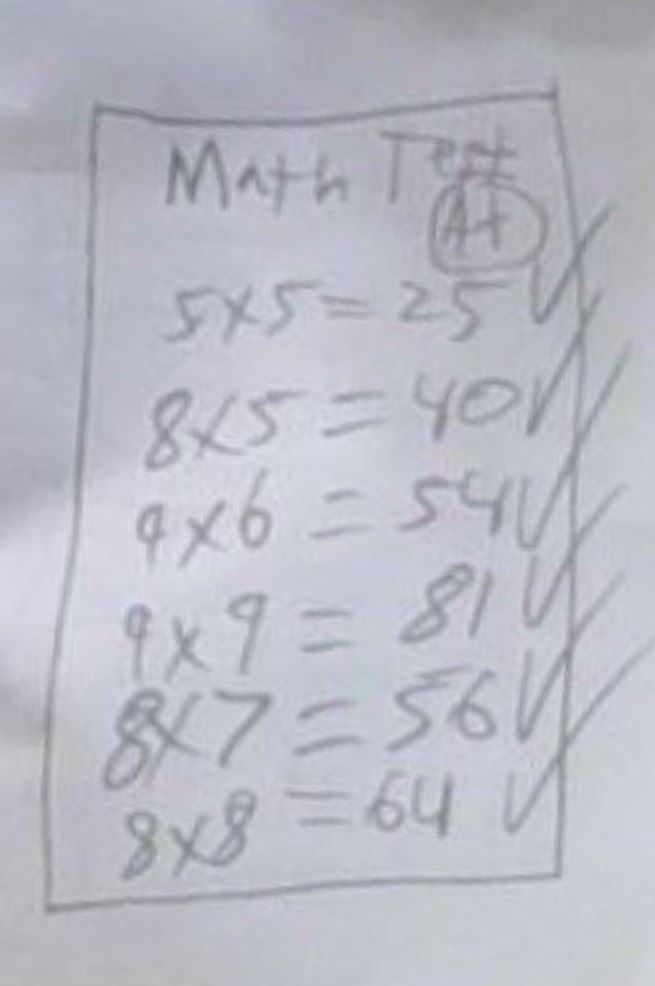 Math Test
A+
5x5=25 ✓
8x5=40 ✓
9x6=54 ✓
9x9=81 ✓
8x7=56 ✓
8x8=64 ✓